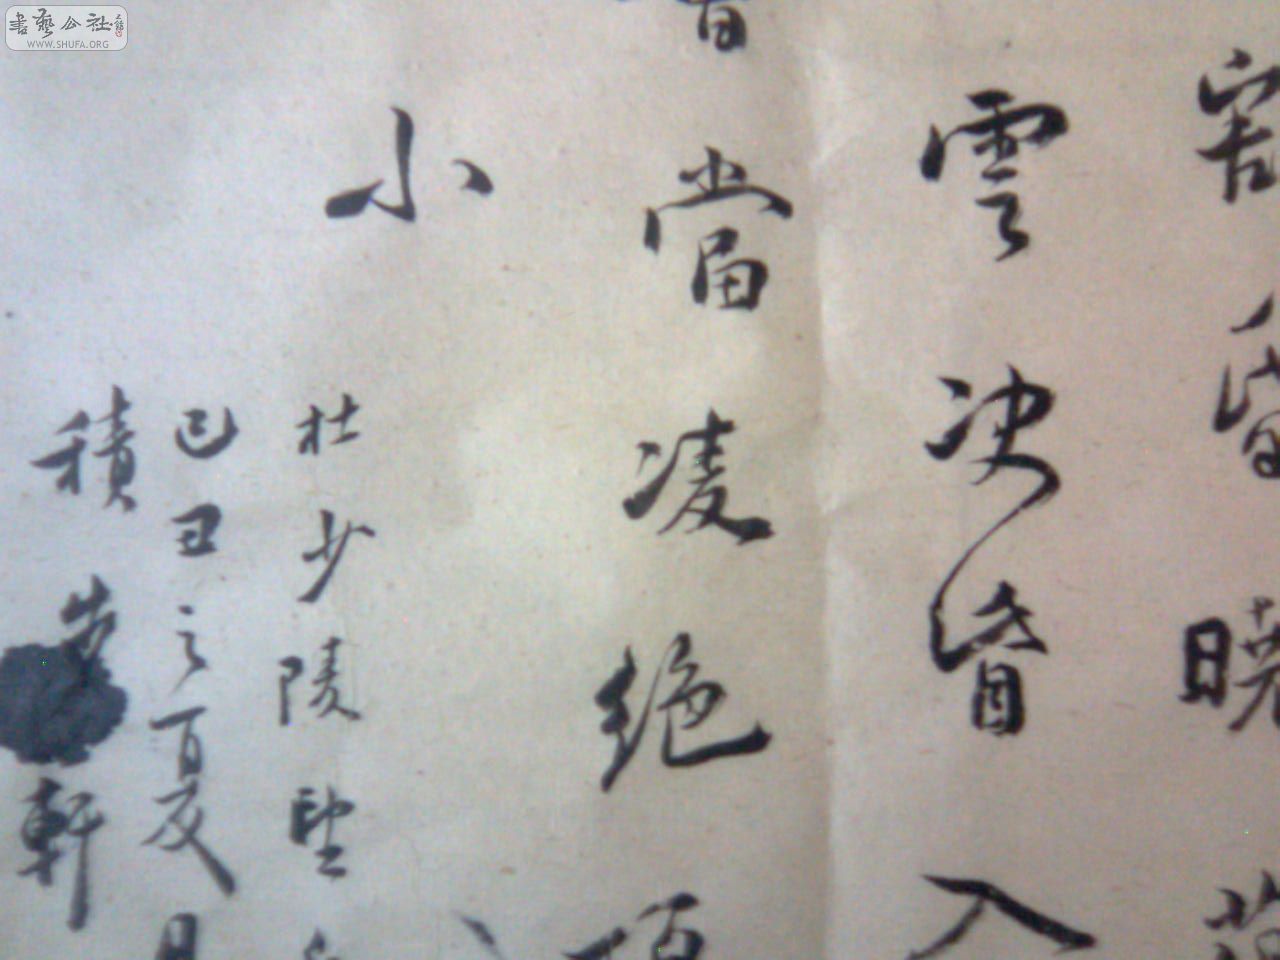 書藝公社
WWW.SHUFA.ORG
割昏曉
雲決眥入
會當凌絕頂
小
杜少陵望
己丑之首夏月
積 軒